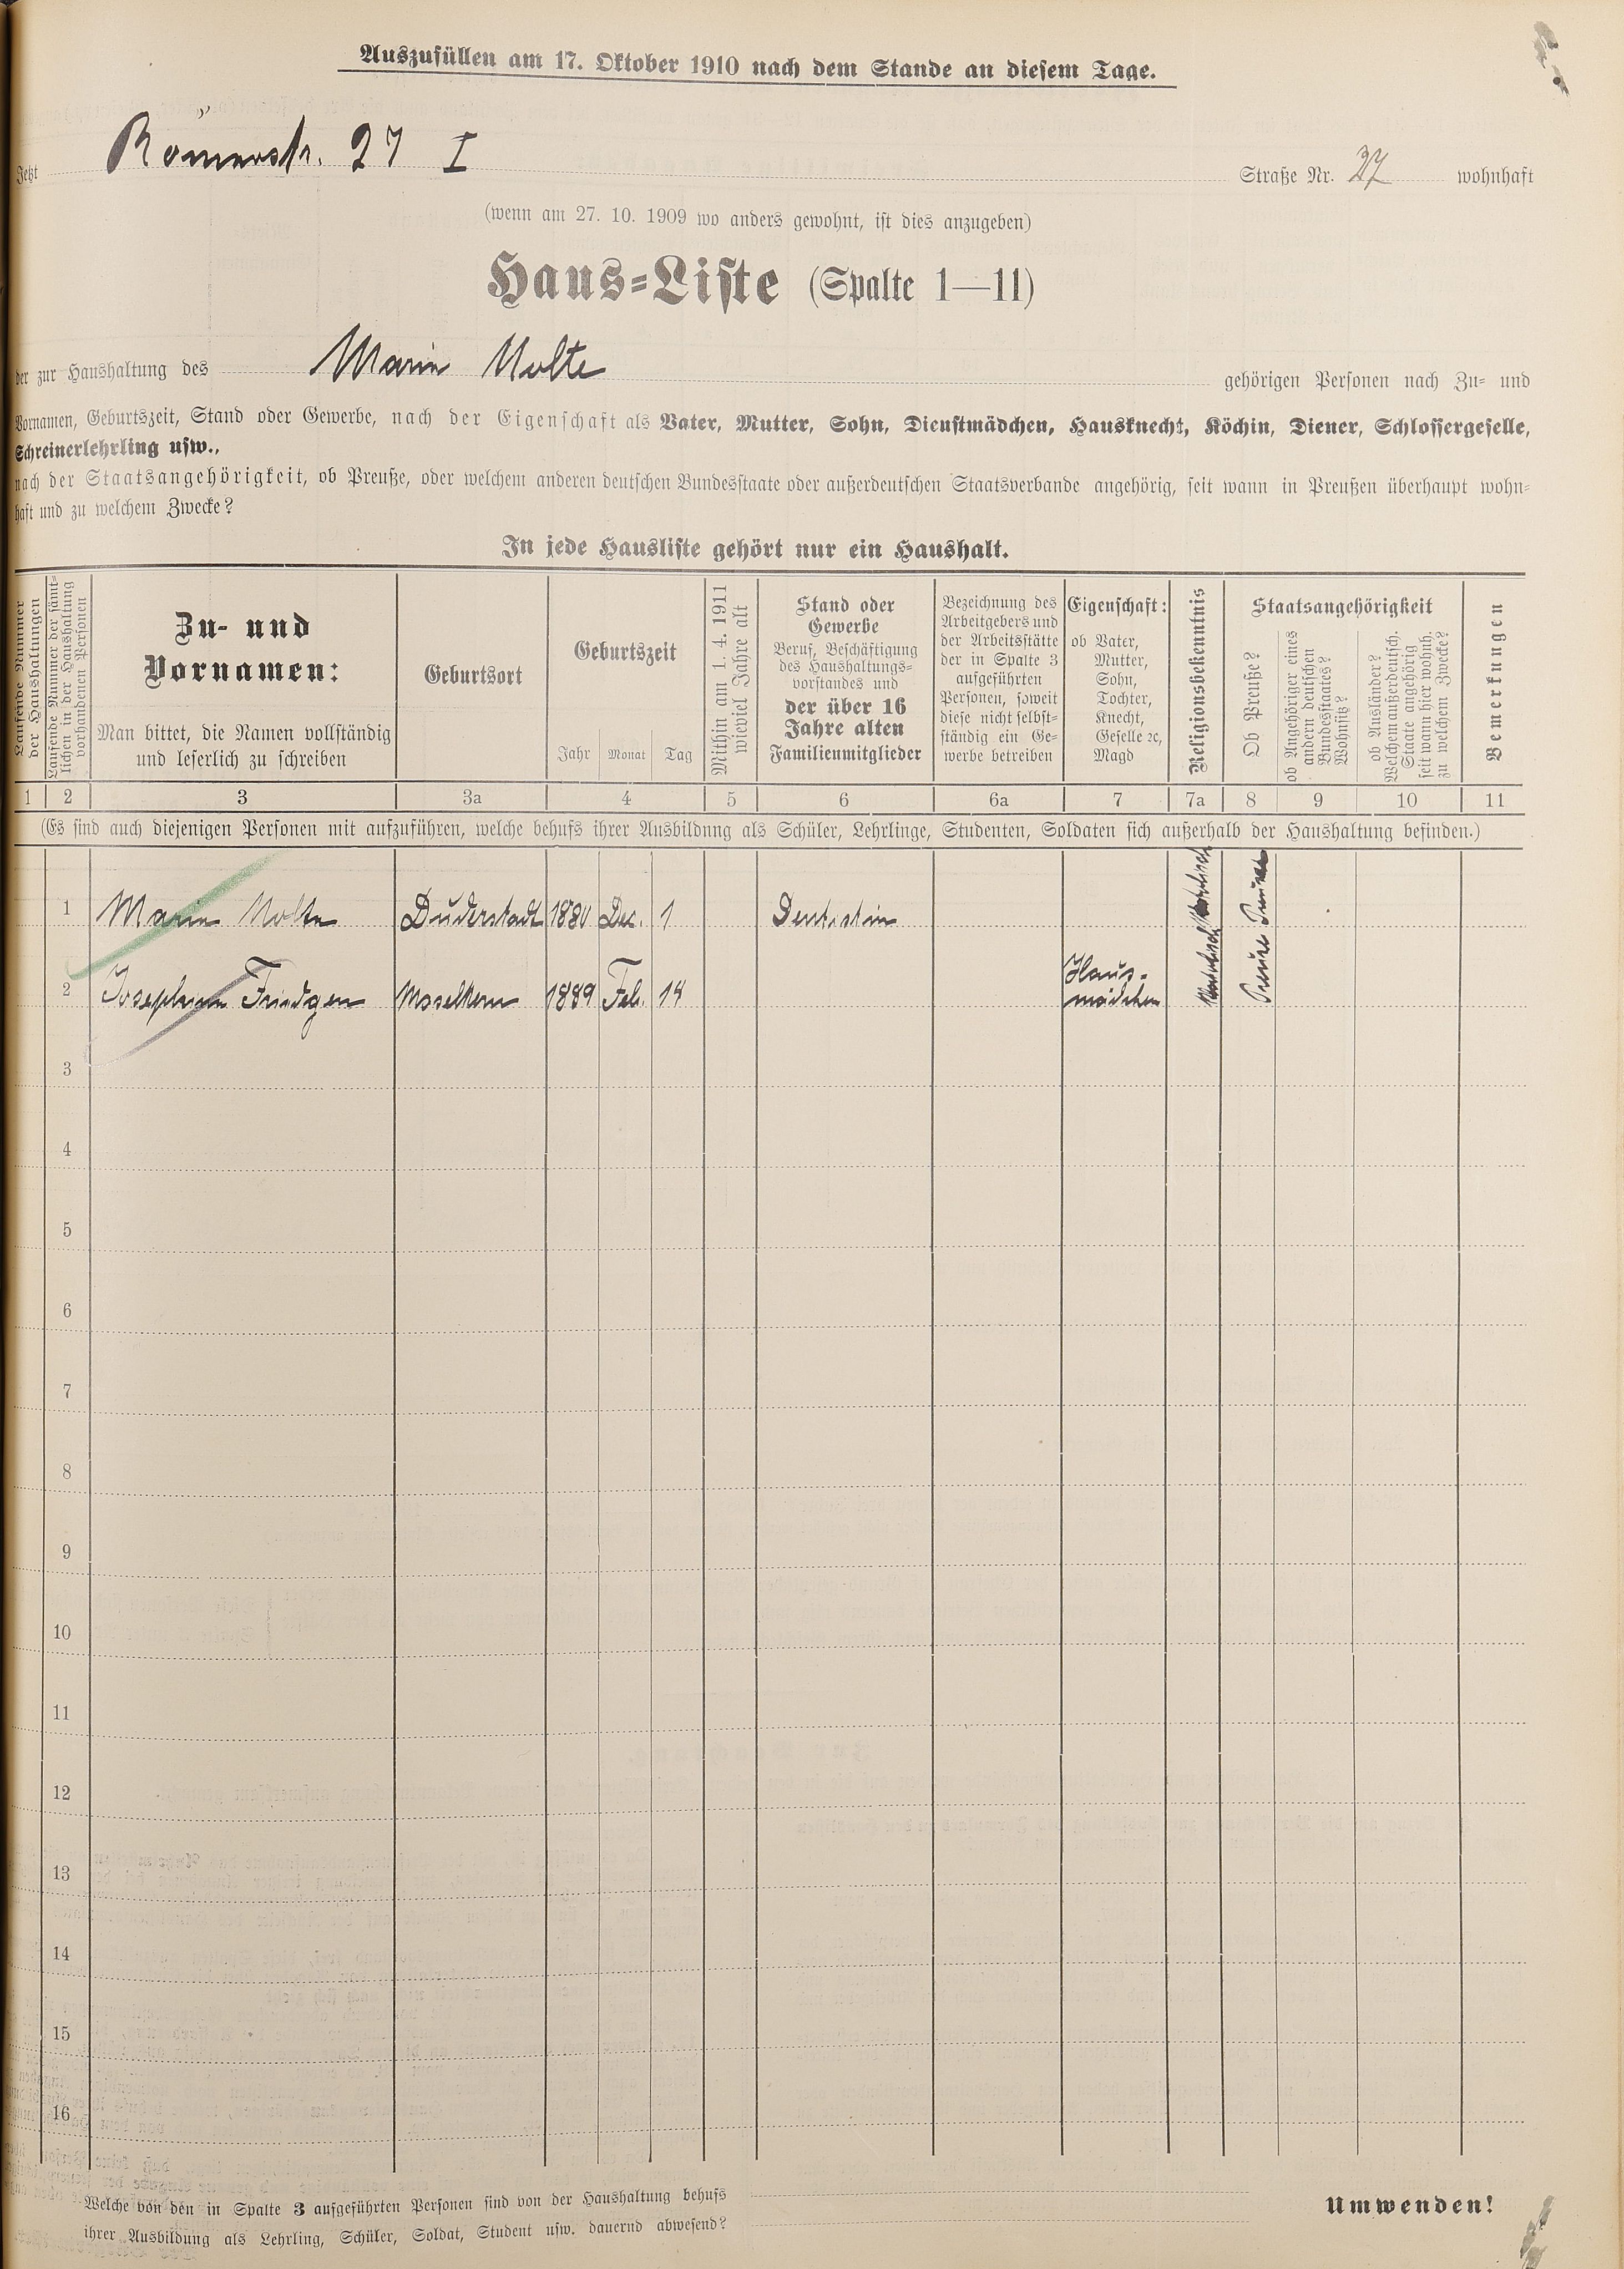 Auszufüllen am 17. Oktober 1910 nach dem Stande an diesem Tage.
Jetzt Römerstr. 27 I Straße Nr. 27 wohnhaft
(wenn am 27. 10. 1909 wo anders gewohnt, ist dies anzugeben)
Haus-Liste (Spalte 1—11)
der zur Haushaltung des Maria Nolte gehörigen Personen nach Zu- und
Vornamen, Geburtszeit, Stand oder Gewerbe, nach der Eigenschaft als Vater, Mutter, Sohn, Dienstmädchen, Hausknecht, Köchin, Diener, Schlossergeselle,
Schreinerlehrling usw.,
nach der Staatsangehörigkeit, ob Preuße, oder welchem anderen deutschen Bundesstaate oder außerdeutschen Staatsverbande angehörig, seit wann in Preußen überhaupt wohn-
haft und zu welchem Zwecke?
In jede Hausliste gehört nur ein Haushalt.
Laufende Nummer
der Haushaltungen
Laufende Nummer der sämt-
lichen in der Haushaltung
vorhandenen Personen
Zu- und
Vornamen:
Man bittet, die Namen vollständig
und leserlich zu schreiben
Geburtsort
Geburtszeit
Jahr Monat Tag
Mithin am 1. 4. 1911
wieviel Jahre alt
Stand oder
Gewerbe
Beruf, Beschäftigung
des Haushaltungs-
vorstandes und
der über 16
Jahre alten
Familienmitglieder
Bezeichnung des
Arbeitgebers und
der Arbeitsstätte
der in Spalte 3
aufgeführten
Personen, soweit
diese nicht selbst-
ständig ein Ge-
werbe betreiben
Eigenschaft:
ob Vater,
Mutter,
Sohn,
Tochter,
Knecht,
Geselle ꝛc,
Magd
Religionsbekenntnis
Staatsangehörigkeit
Ob Preuße?
ob Angehöriger eines
andern deutschen
Bundesstaates?
Wohnsitz?
ob Ausländer?
Welchem außerdeutsch.
Staate angehörig
seit wann hier wohnh.
zu welchem Zwecke?
Bemerkungen
1 2 3 3a 4 5 6 6a 7 7a 8 9 10 11
(Es sind auch diejenigen Personen mit aufzuführen, welche behufs ihrer Ausbildung als Schüler, Lehrlinge, Studenten, Soldaten sich außerhalb der Haushaltung befinden.)
1 Maria Nolte Duderstadt 1880 Dec. 1 Dentistin Katholisch Preuße
2 Josephine Friedgen Moselkern 1889 Feb. 14 Haus-
mädchen Katholisch Preuße
3
4
5
6
7
8
9
10
11
12
13
14
15
16
Welche von den in Spalte 3 aufgeführten Personen sind von der Haushaltung behufs
ihrer Ausbildung als Lehrling, Schüler, Soldat, Student usw. dauernd abwesend?
Umwenden!